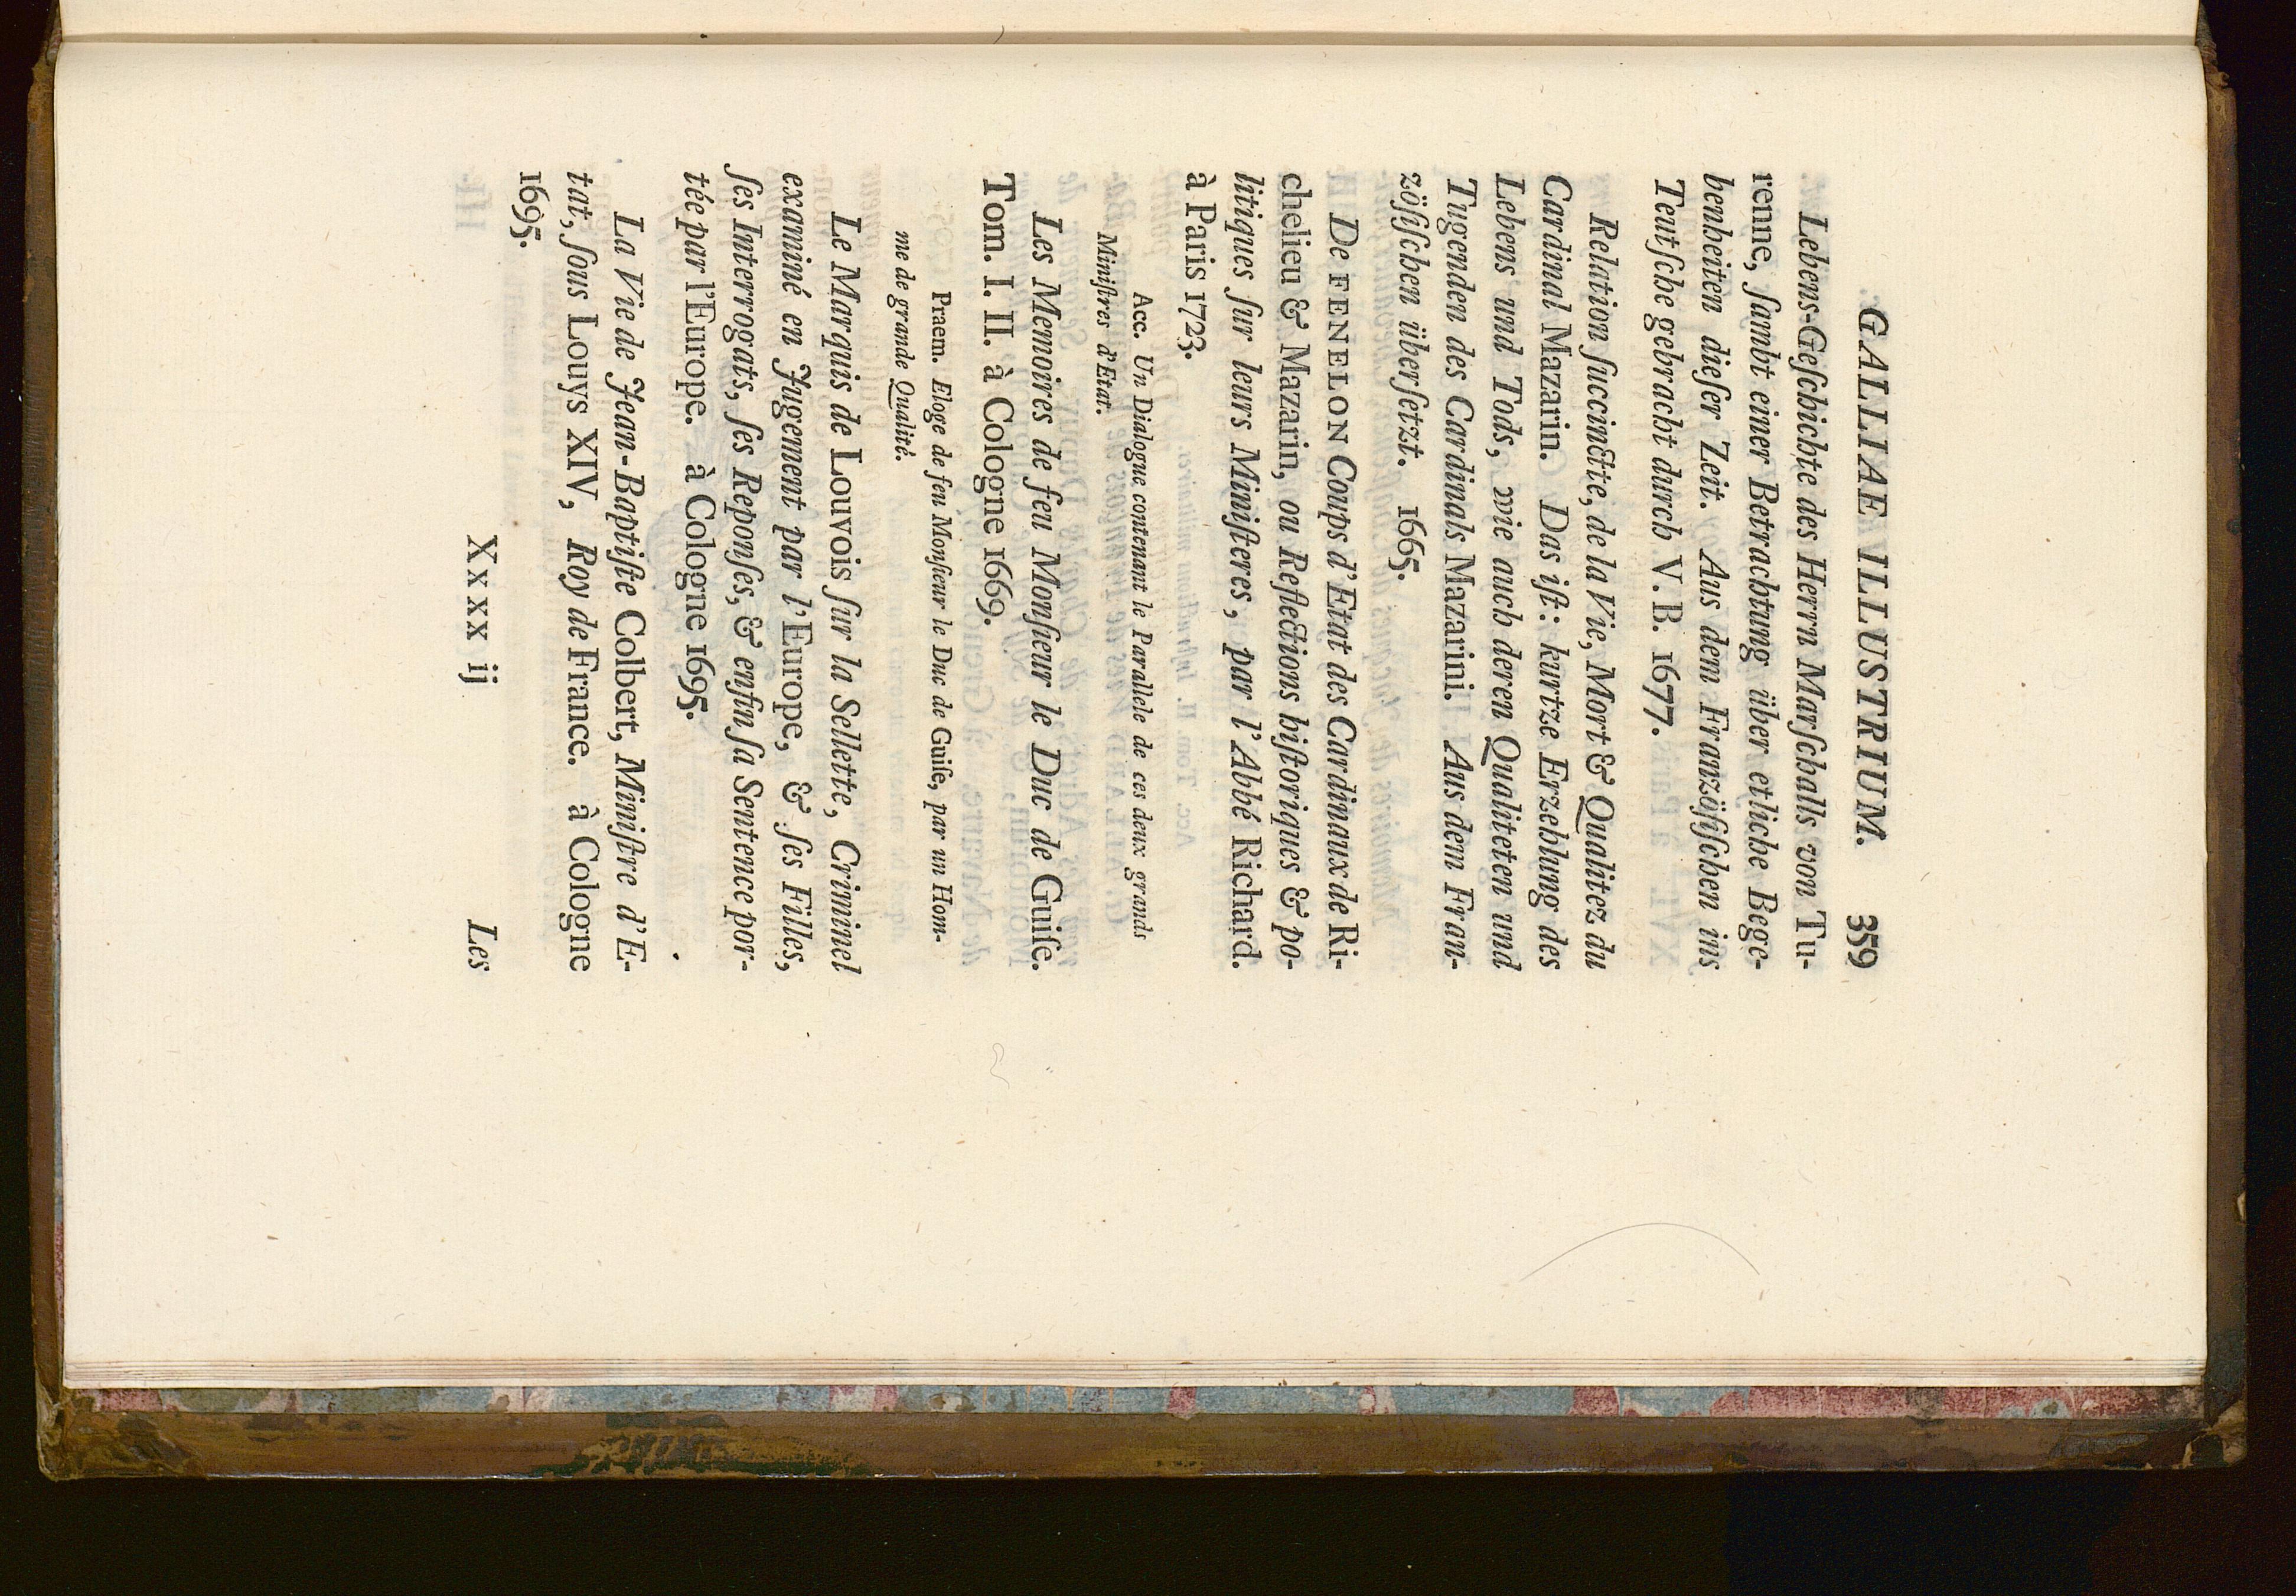 GALLIAE ILLUSTRIUM. 359
Lebens-Geſchichte des Herrn Marſchalls von Tu-
renne, ſambt einer Betrachtung über etliche Bege-
benheiten dieſer Zeit. Aus dem Franzöſiſchen ins
Teutſche gebracht durch V. B. 1677.
Relation ſuccincte, de la Vie, Mort & Qualitez du
Cardinal Mazarin. Das iſt: kurtze Erzehlung des
Lebens und Tods, wie auch deren Qualiteten und
Tugenden des Cardinals Mazarini. Aus dem Fran-
zöſiſchen überſetzt. 1665.
De FENELON Coups d'Etat des Cardinaux de Ri-
chelieu & Mazarin, ou Reflections hiſtoriques & po-
litiques ſur leurs Miniſteres, par l'Abbé Richard.
à Paris 1723.
Acc. Un Dialogue contenant le Parallele de ces deux grands
Miniſtres d'Etat.
Les Memoires de feu Monſieur le Duc de Guiſe.
Tom. I. II. à Cologne 1669.
Praem. Eloge de feu Monſieur le Duc de Guiſe, par un Hom-
me de grande Qualité.
Le Marquis de Louvois ſur la Sellette, Criminel
examiné en Jugement par l'Europe, & ſes Filles,
ſes Interrogats, ſes Reponſes, & enfin ſa Sentence por-
tée par l'Europe. à Cologne 1695.
La Vie de Jean-Baptiſte Colbert, Miniſtre d'E-
tat, ſous Louys XIV, Roy de France. à Cologne
1695.
Xxxx ij Les